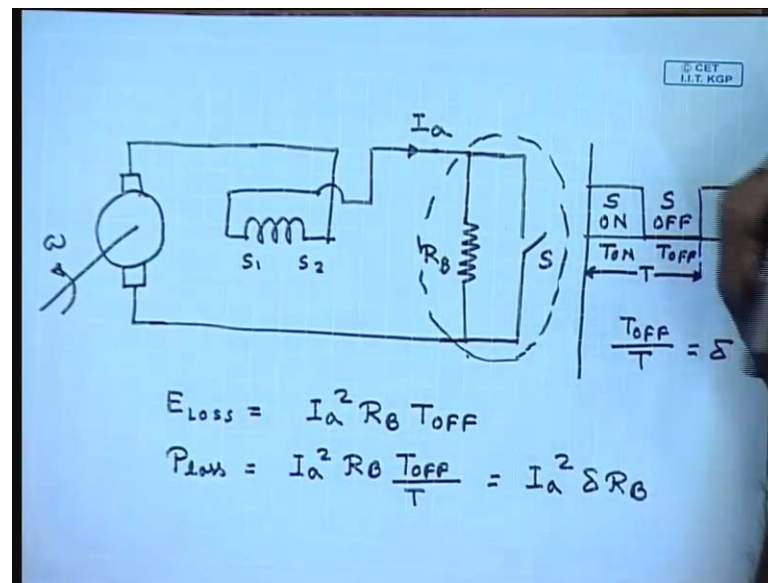 © CET
I.I.T. KGP
Ia
ω
S1 S2
RB
S
S ON
S OFF
TON TOFF
T
TOFF/T = δ
ELOSS = Ia² RB TOFF
Ploss = Ia² RB TOFF/T = Ia² δ RB